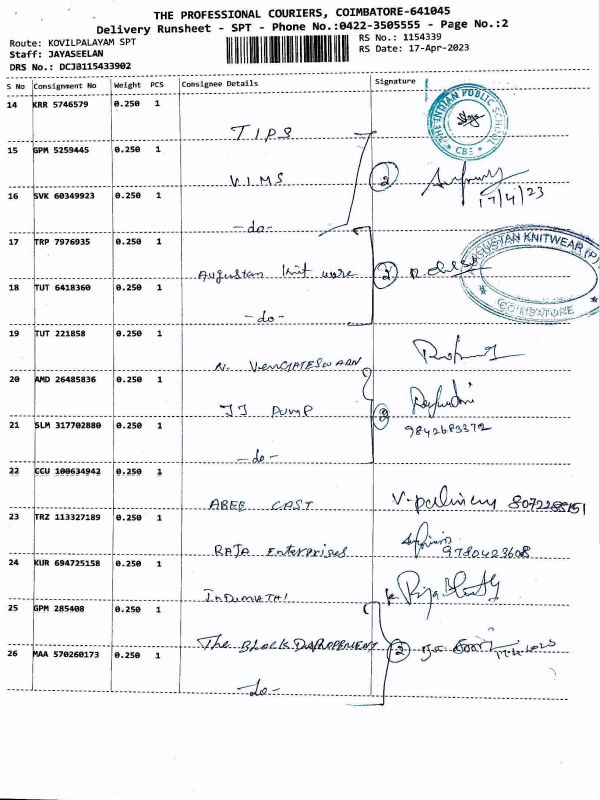 THE PROFESSIONAL COURIERS, COIMBATORE-641045
Delivery Runsheet - SPT - Phone No.:0422-3505555 - Page No.:2
Route: KOVILPALAYAM SPT
Staff: JAYASEELAN
DRS No.: DCJB115433902
RS No.: 1154339
RS Date: 17-Apr-2023
S No Consignment No Weight PCS Consignee Details Signature
14 KRR 5746579 0.250 1
TIPS
THE INDIAN PUBLIC SCHOOL
* CBE *
15 GPM 5259445 0.250 1
V.I.M.S 2
17/4/23
16 SVK 60349923 0.250 1
-do-
17 TRP 7976935 0.250 1
Augustan Knit ware 2
AUGUSTAN KNITWEAR (P)
COIMBATORE
18 TUT 6418360 0.250 1
-do-
19 TUT 221858 0.250 1
N. VENGATESWARN
20 AMD 26485836 0.250 1
JJ PUMP
9842683372
21 SLM 317702880 0.250 1
-do-
22 CCU 100634942 0.250 1
ABEE CAST
23 TRZ 113327189 0.250 1
RAJA Enterprises 9780423608
24 KUR 694725158 0.250 1
INDUMATHI
25 GPM 285408 0.250 1
The BLOCK 2
26 MAA 570260173 0.250 1
-do-